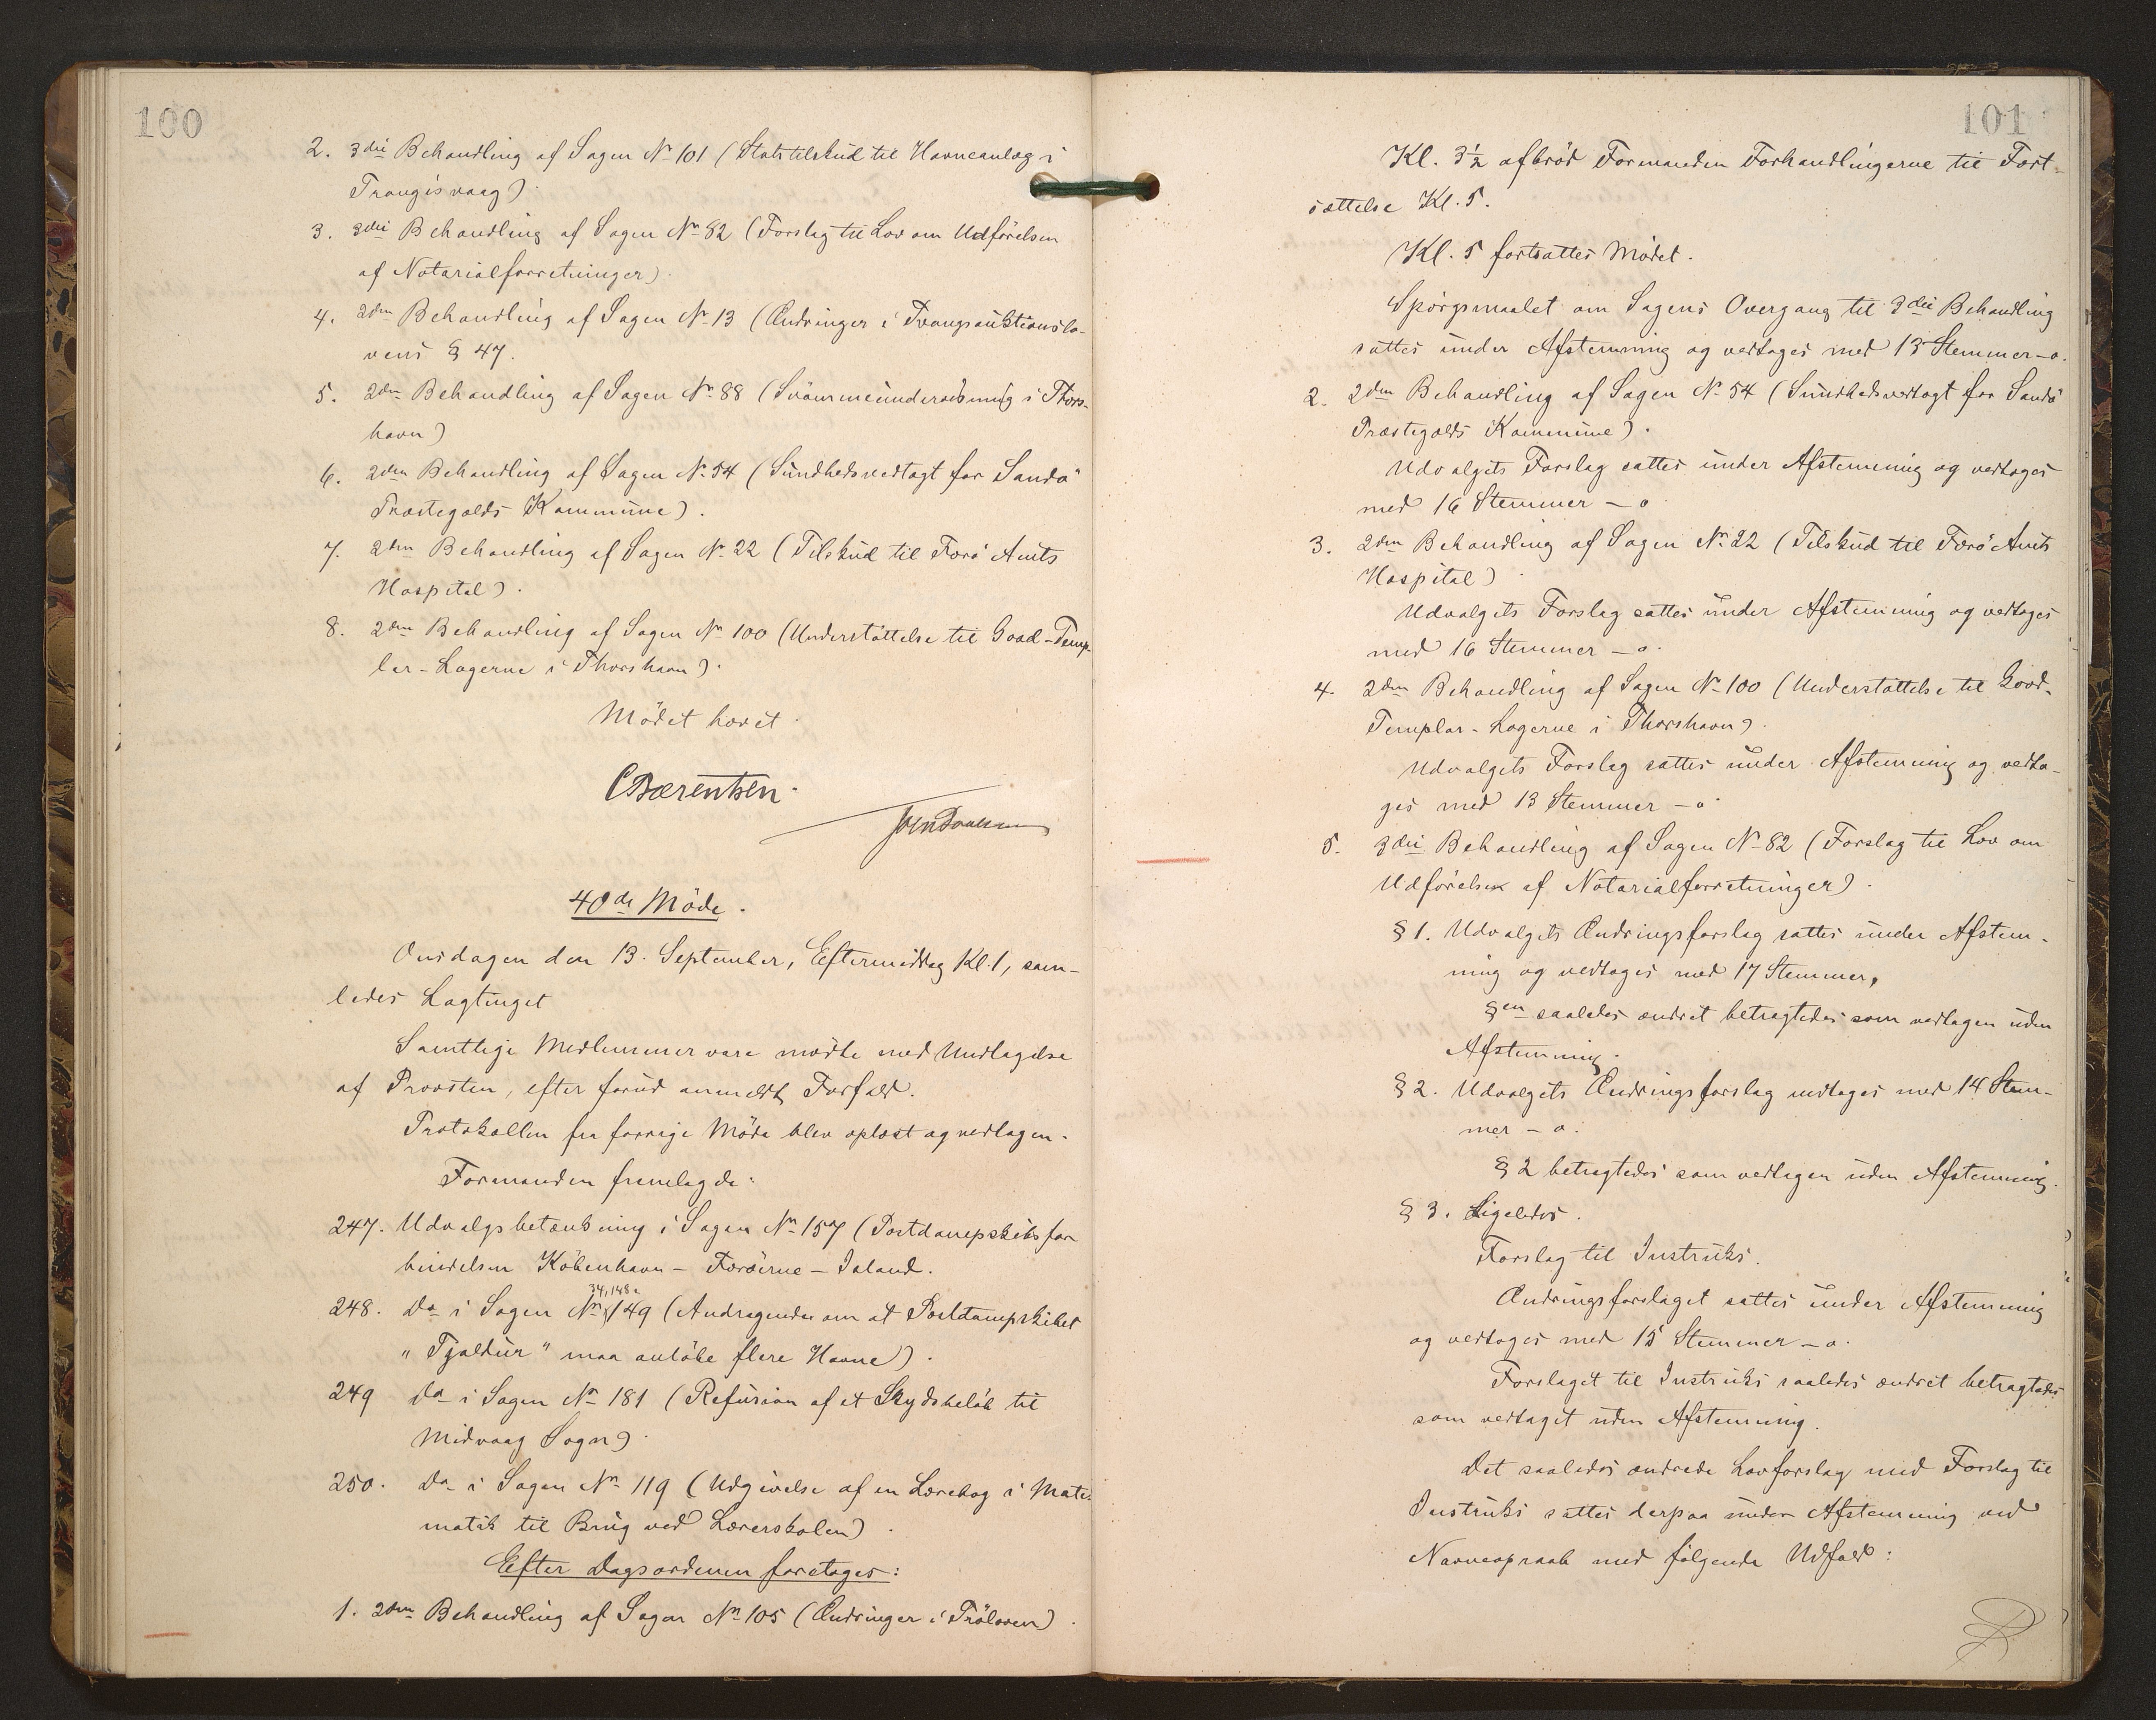 100
2. 3die Behandling af Sagen No 101 (Statstilskud til Havneanlæg i
Trangisvaag).
3. 3die Behandling af Sagen No 82 (Forslag til Lov om Udførelsen
af Notarialforretninger).
4. 2den Behandling af Sagen No 13 (Ændringer i Tvangsauktionslo-
vens § 47.
5. 2den Behandling af Sagen No 88 (Svømmeundervisning i Thors-
havn)
6. 2den Behandling af Sagen No 54 (Sundhedsvedtægt for Sandø
Præstegælds Kommune).
7. 2den Behandling af Sagen No 22 (Tilskud til Færø Amts
Hospital).
8. 2den Behandling af Sagen No 100 (Understøttelse til Good-Temp-
lar-Logerne i Thorshavn).
Mødet hævet.
CBærentsen.
40de Møde.
Onsdagen den 13. September, Eftermiddag Kl. 1, sam-
ledes Lagtinget
Samtlige Medlemmer vare mødte med Undtagelse
af Provsten, efter forud anmeldt Forfald.
Protokollen fra forrige Møde blev oplæst og vedtagen.
Formanden fremlagde:
247. Udvalgsbetænkning i Sagen No 157 (Postdampskibsfor
bindelsen København - Færøerne - Island.
34, 148 &
248. Do i Sagen No 149 (Andragende om at Postdampskibet
"Tjaldur" maa anløbe flere Havne).
249 Do i Sagen No 181 (Refusion af et Skydsbeløb til
Midvaag Sogn).
250. Do i Sagen No 119 (Udgivelse af en Lærebog i Mate-
matik til Brug ved Lærerskolen).
Efter Dagsordenen foretoges:
1. 2den Behandling af Sagen No 105 (Ændringer i Trøloven).
101
Kl. 3½ afbrød Formanden Forhandlingerne til Fort-
sættelse Kl. 5.
Kl. 5 fortsattes Mødet.
Spørgsmaalet om Sagens Overgang til 3die Behandling
sattes under Afstemning og vedtoges med 13 Stemmer - o.
2. 2den Behandling af Sagen No 54 (Sundhedsvedtægt for Sandø
Præstegælds Kommune).
Udvalgets Forslag sattes under Afstemning og vedtoges
med 16 Stemmer - o
3. 2den Behandling af Sagen No 22 (Tilskud til Færø Amts
Hospital)
Udvalgets Forslag sattes under Afstemning og vedtoges
med 16 Stemmer - o.
4. 2den Behandling af Sagen No 100 (Understøttelse til Good-
Templar-Logerne i Thorshavn).
Udvalgets Forslag sattes under Afstemning og vedto-
ges med 13 Stemmer - o.
5. 3die Behandling af Sagen No 82 (Forslag til Lov om
Udførelsen af Notarialforretninger).
§ 1. Udvalgets Ændringsforslag sattes under Afstem-
ning og vedtoges med 17 Stemmer,
§en saaledes ændret betragtedes som vedtagen uden
Afstemning.
§ 2. Udvalgets Ændringsforslag vedtoges med 14 Stem-
mer - o.
§ 2 betragtedes som vedtagen uden Afstemning.
§ 3. Ligeledes.
Forslag til Instruks.
Ændringsforslaget sattes under Afstemning
og vedtoges med 15 Stemmer - o.
Forslaget til Instruks saaledes ændret betragtedes
som vedtaget uden Afstemning.
Det saaledes ændrede Lovforslag med Forslag til
Instruks sattes derpaa under Afstemning ved
Navneopraab med følgende Udfald: